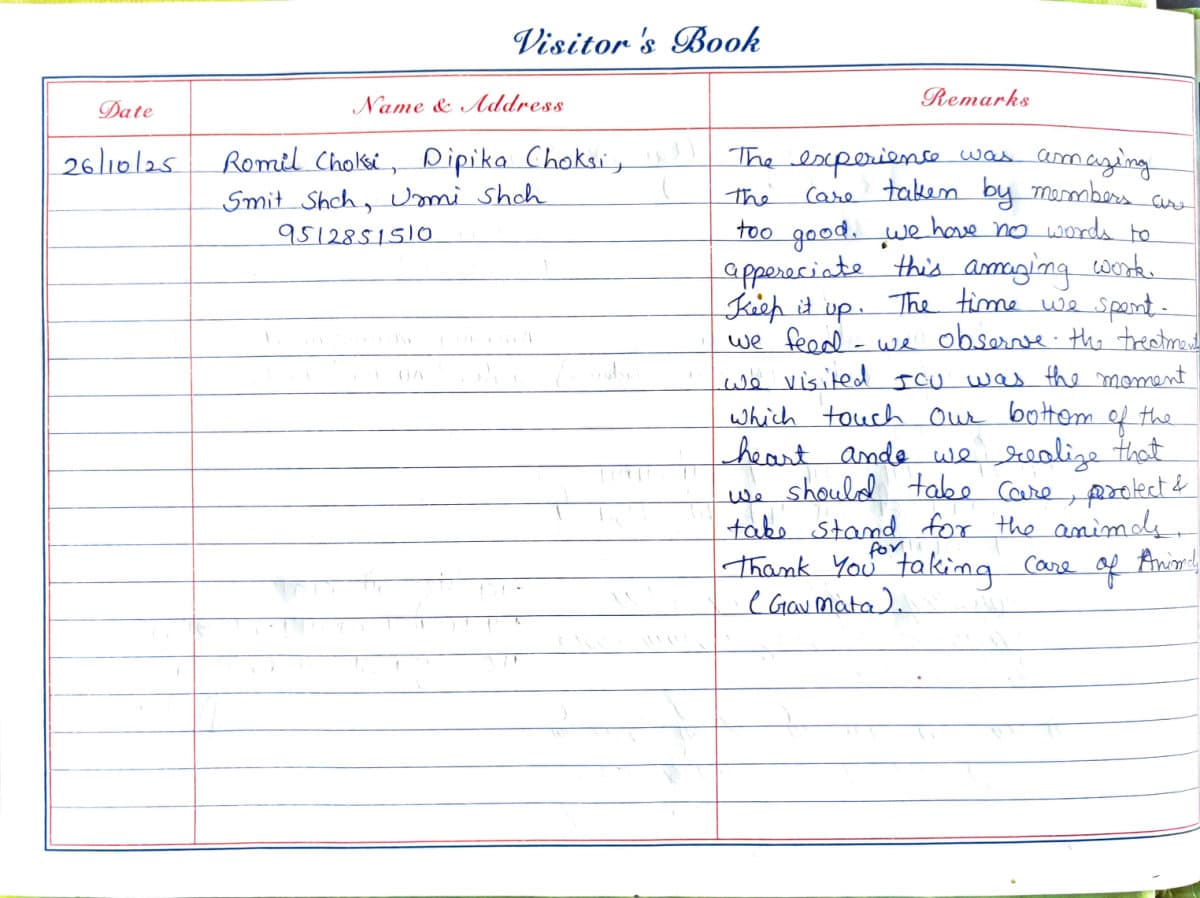 Visitor's Book
Date Name & Address Remarks
26/10/25 Romil Choksi, Dipika Choksi, The experience was amazing
Smit Shah, Urmi Shah The care taken by members are
9512851510 too good. we have no words to
appereciate this amazing work.
Keep it up. The time we spent.
we feed - we observe. the treatment
we visited ICU was the moment
which touch our bottom of the
heart ande we realize that
we should take care, protect &
take stand for the animals.
Thank You for taking care of Animals
(Gau mata).